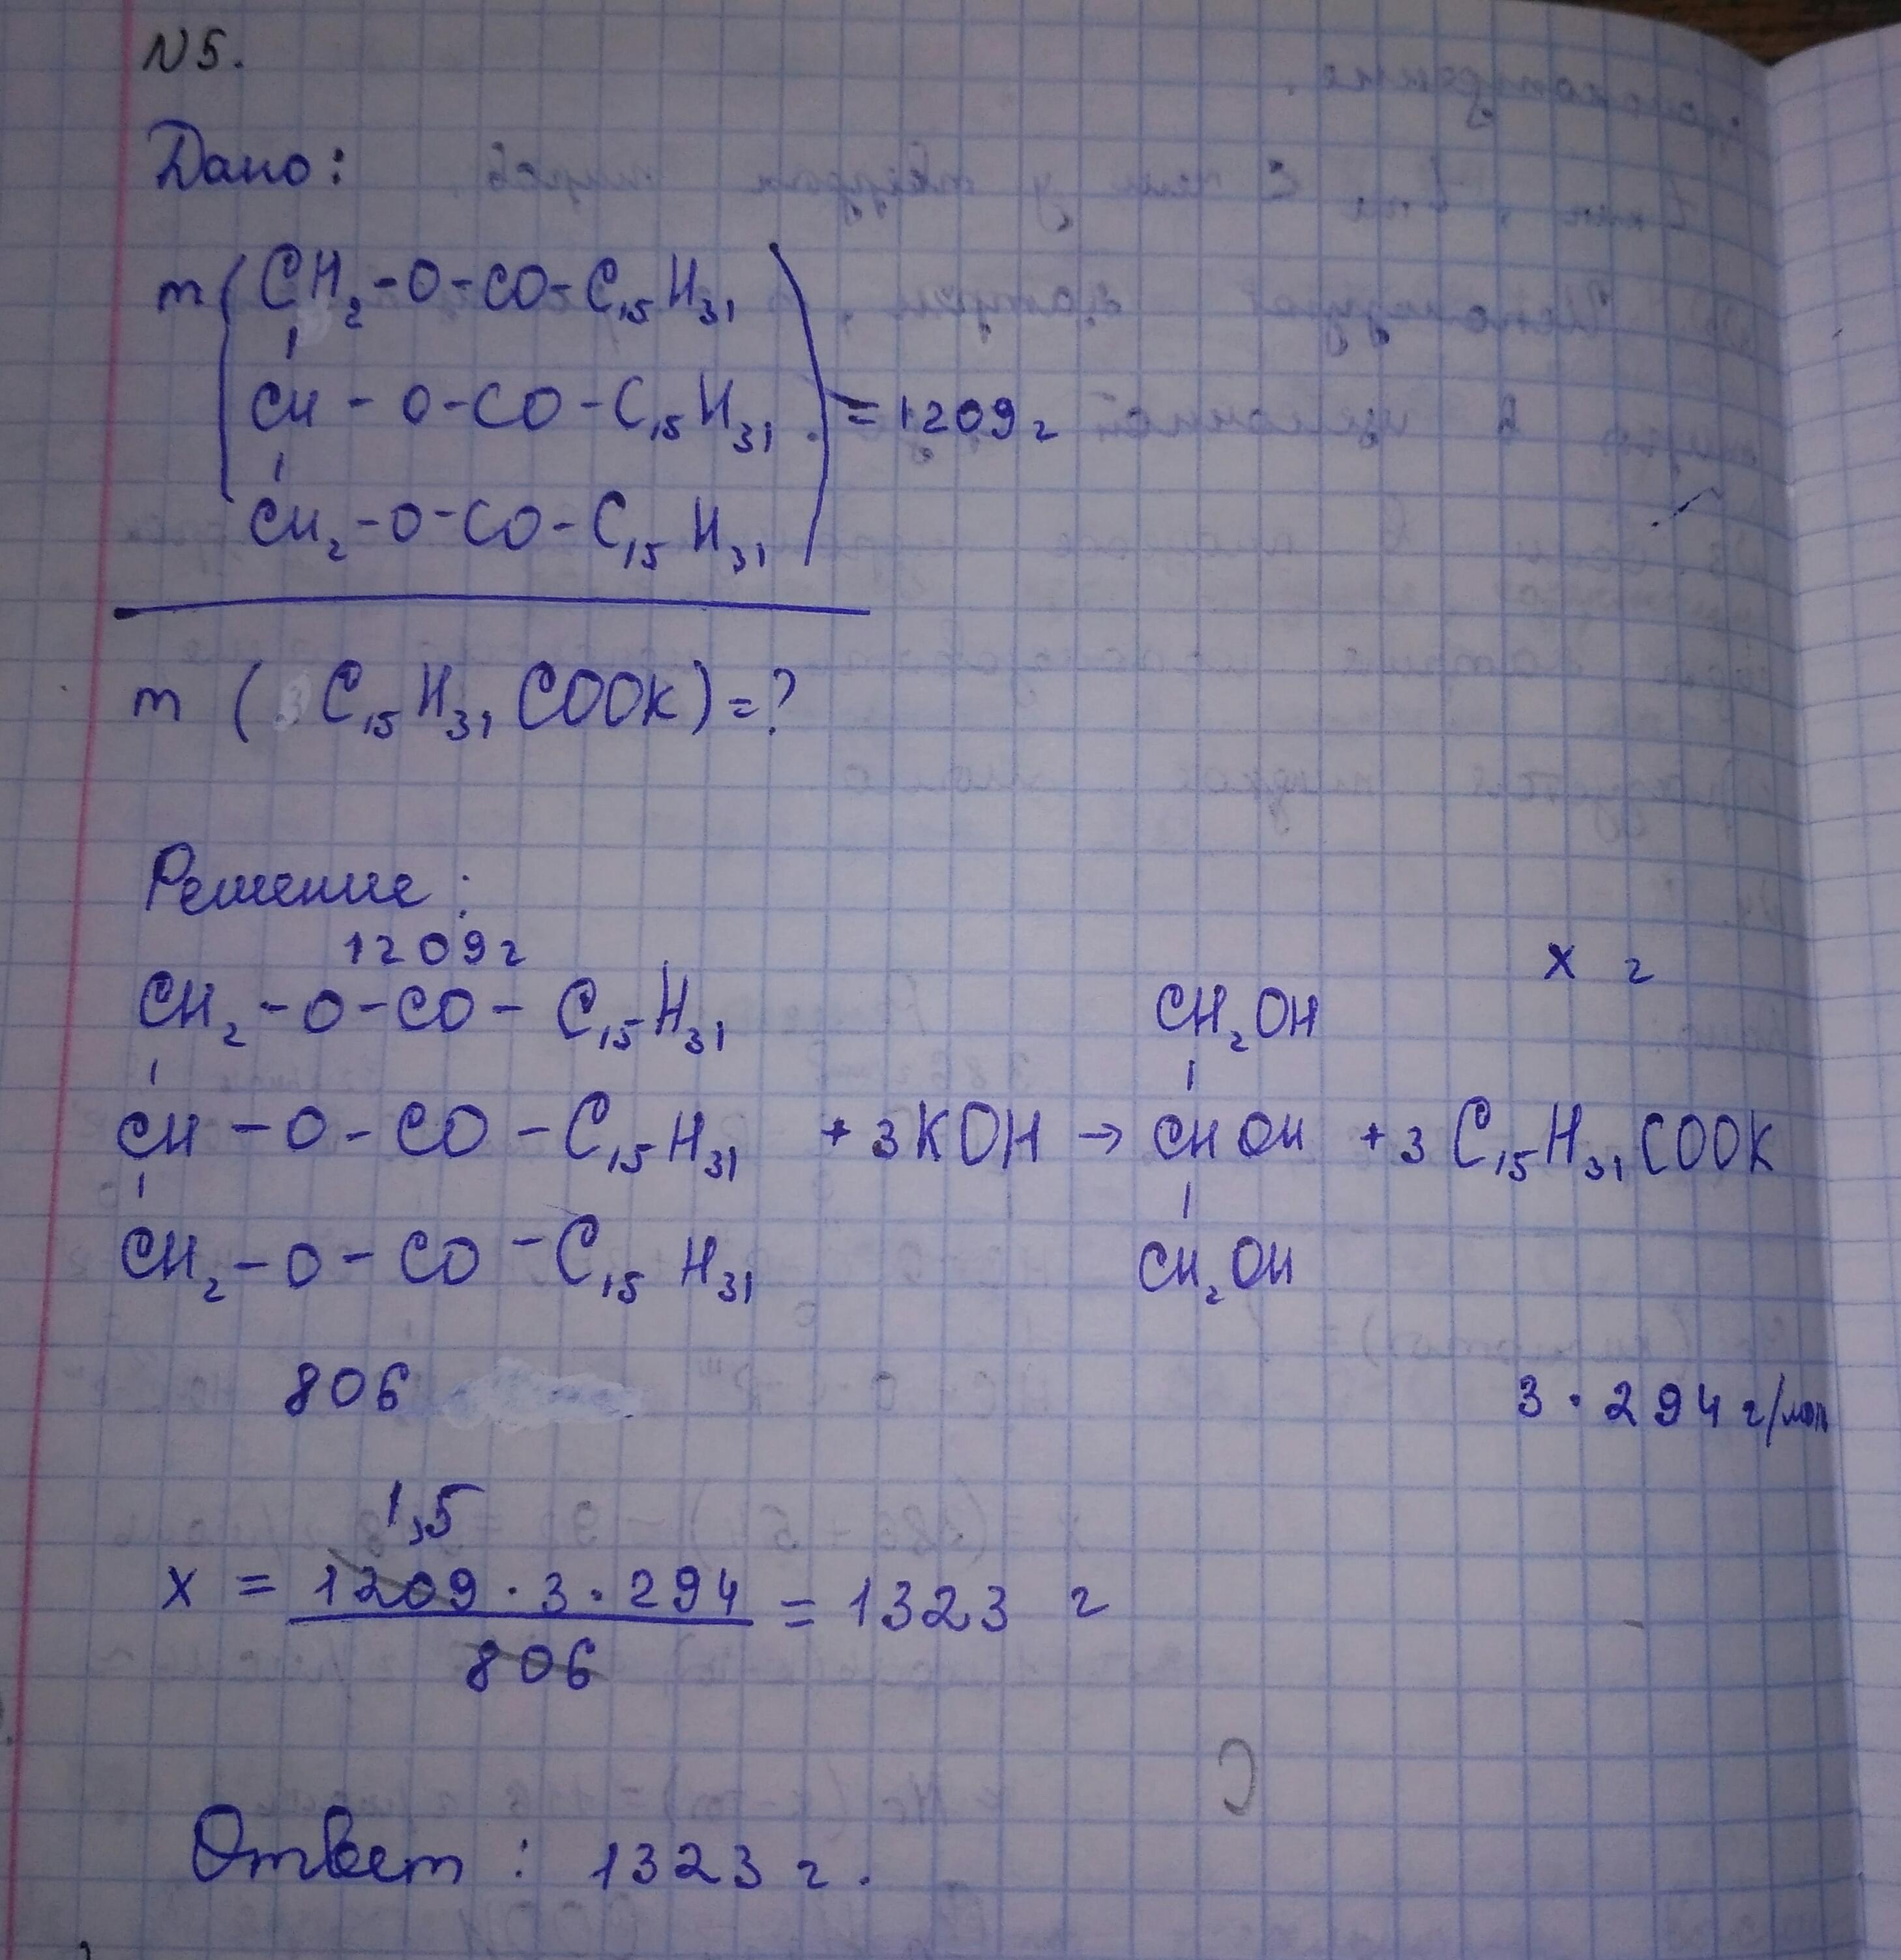 N5.
Дано:
m(CH₂-O-CO-C₁₅H₃₁
CH-O-CO-C₁₅H₃₁) = 1209 г
CH₂-O-CO-C₁₅H₃₁
m (C₁₅H₃₁COOK)=?
Решение:
1209 г x г
CH₂-O-CO-C₁₅H₃₁ CH₂OH
CH-O-CO-C₁₅H₃₁ + 3KOH → CHOH + 3C₁₅H₃₁COOK
CH₂-O-CO-C₁₅H₃₁ CH₂OH
806 3·294 г/моль
1,5
x = 1209·3·294 = 1323 г
806
Ответ: 1323 г.